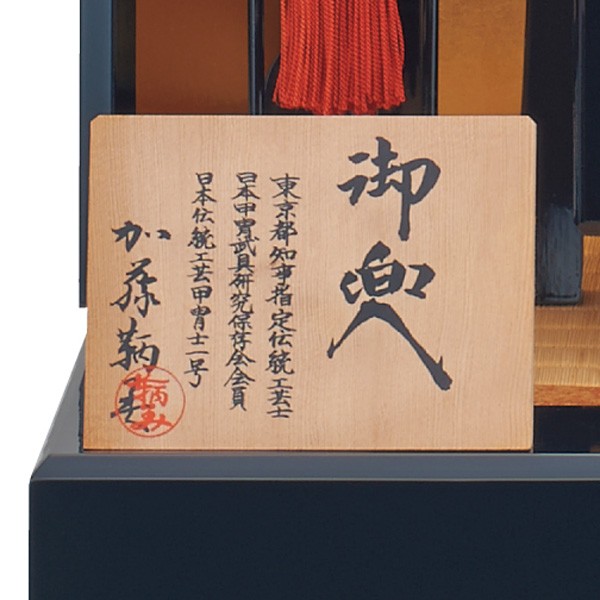 御兜
東京都知事指定伝統工芸士
日本甲冑武具研究保存会会員
日本伝統工芸甲冑士一号
加藤鞆美
鞆美